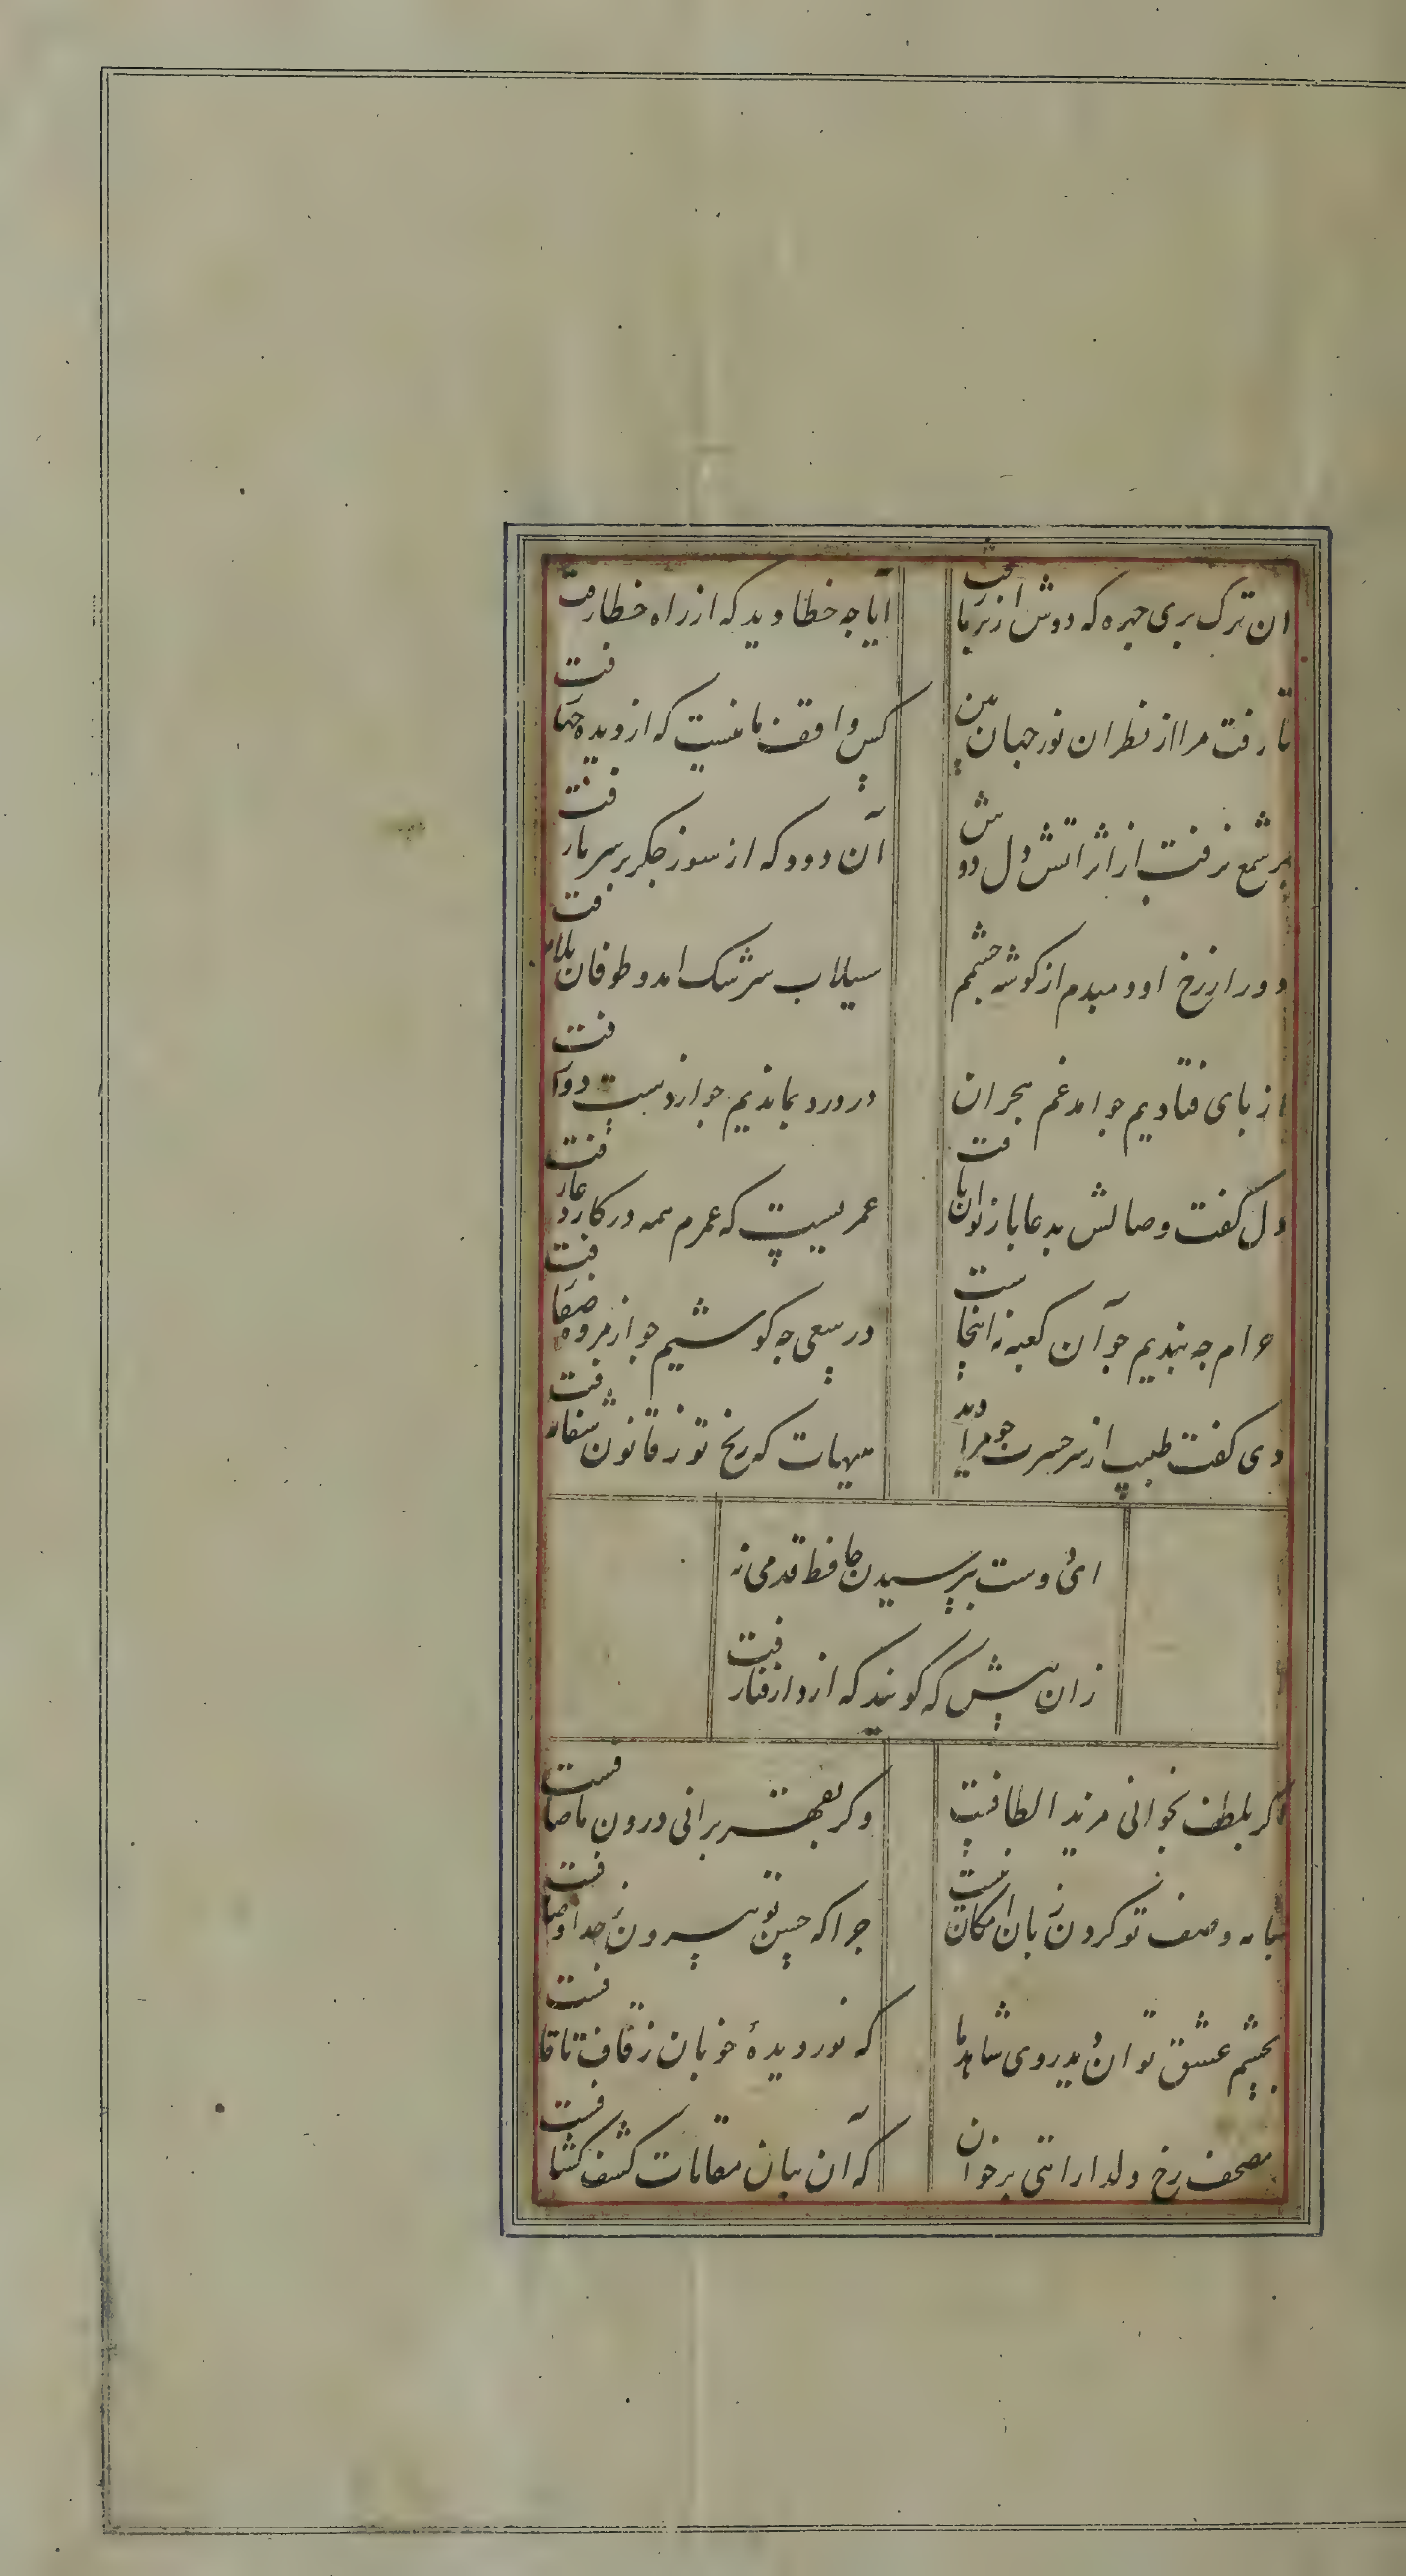 ان ترک بری جهره که دوش از بر ما رفت
آیا جه خطا دید که از راه خطا رفت
تا رفت مرا از نظر ان نور جهان بین
کس واقف ما نیست که از دیده جها رفت
بر شمع نرفت از اثر اتش دل دوش
آن دود که از سوز جکر بر سر ما رفت
دور از رخ او دمبدم از کوشه جشمم
سیلاب سرشک امد و طوفان بلا رفت
از بای فتادیم جو امد غم هجران
در درد بماندیم جو از دست دوا رفت
دل کفت وصالش بدعا باز توان یافت
عمریست که عمرم همه در کار دعا رفت
احرام جه بندیم جو آن کعبه نه اینجاست
در سعی جه کوشیم جو از مروه صفا رفت
دی کفت طبیب از سر حسرت جو مرا دید
هیهات که رنج تو ز قانون شفا رفت
ای دوست بپرسیدن حافظ قدمی نه
زان پیش که کویند که از دار فنا رفت
اکر بلطف بخوانی مزید الطافست
وکر بقهر برانی درون ما صافست
بنامه وصف تو کردن ز بان امکان نیست
جرا که حسن تو بیرون ز حد اوصافست
بجشم عشق توان دید روی شاهد ما
که نور دیدهٔ خوبان ز قاف تا قافست
ز مصحف رخ دلدار ایتی بر خوان
که آن بیان مقامات کشف کشافست